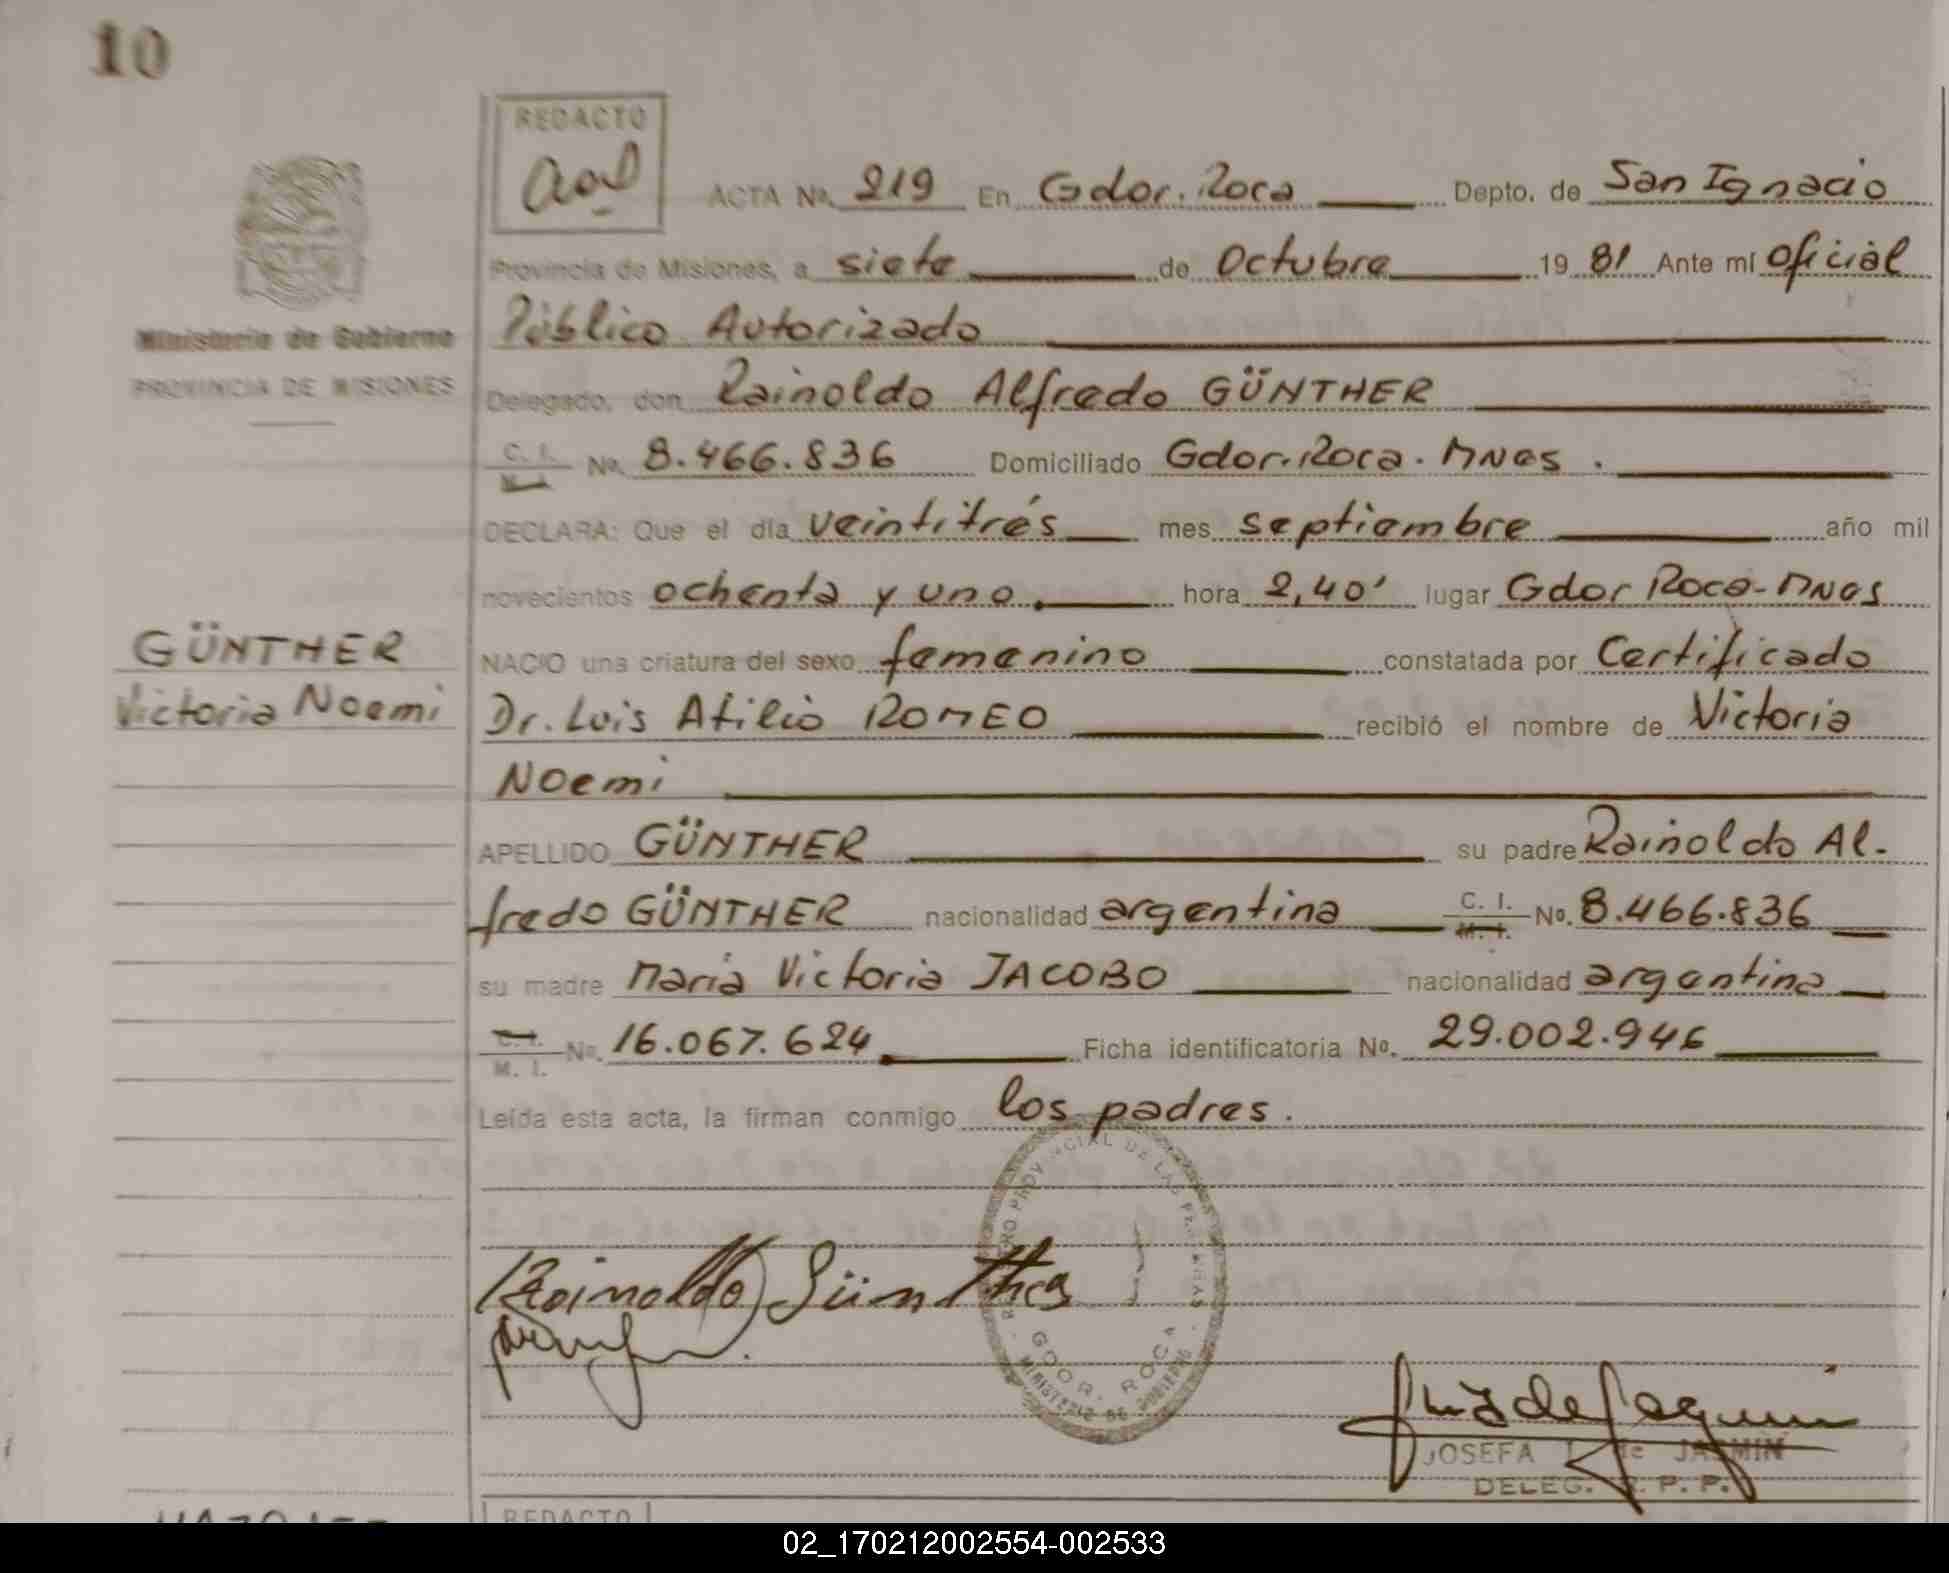 10
REDACTO
ACTA No. 219 En Gdor. Roca Depto. de San Ignacio
Provincia de Misiones, a siete de Octubre 19 81 Ante mí Oficial
Público Autorizado
Ministerio de Gobierno
PROVINCIA DE MISIONES
Delegado, don Rainoldo Alfredo GÜNTHER
C. I. No. 8.466.836 Domiciliado Gdor. Roca. Mnes.
DECLARA: Que el día veintitrés mes septiembre año mil
novecientos ochenta y uno. hora 2,40' lugar Gdor Roca-Mnes
GÜNTHER
Victoria Noemi
NACIO una criatura del sexo femenino constatada por Certificado
Dr. Luis Atilio ROMEO recibió el nombre de Victoria
Noemi
APELLIDO GÜNTHER su padre Rainoldo Al-
fredo GÜNTHER nacionalidad argentina C. I. M. I. No. 8.466.836
su madre Maria Victoria JACOBO nacionalidad argentina
C. I. M. I. No. 16.067.624 Ficha identificatoria No. 29.002.946
Leída esta acta, la firman conmigo los padres.
Rainoldo Günther
GDOR. ROCA
MINISTERIO DE GOBIERNO
JOSEFA de
DELEG. R. P. P.
REDACTO
02_170212002554-002533